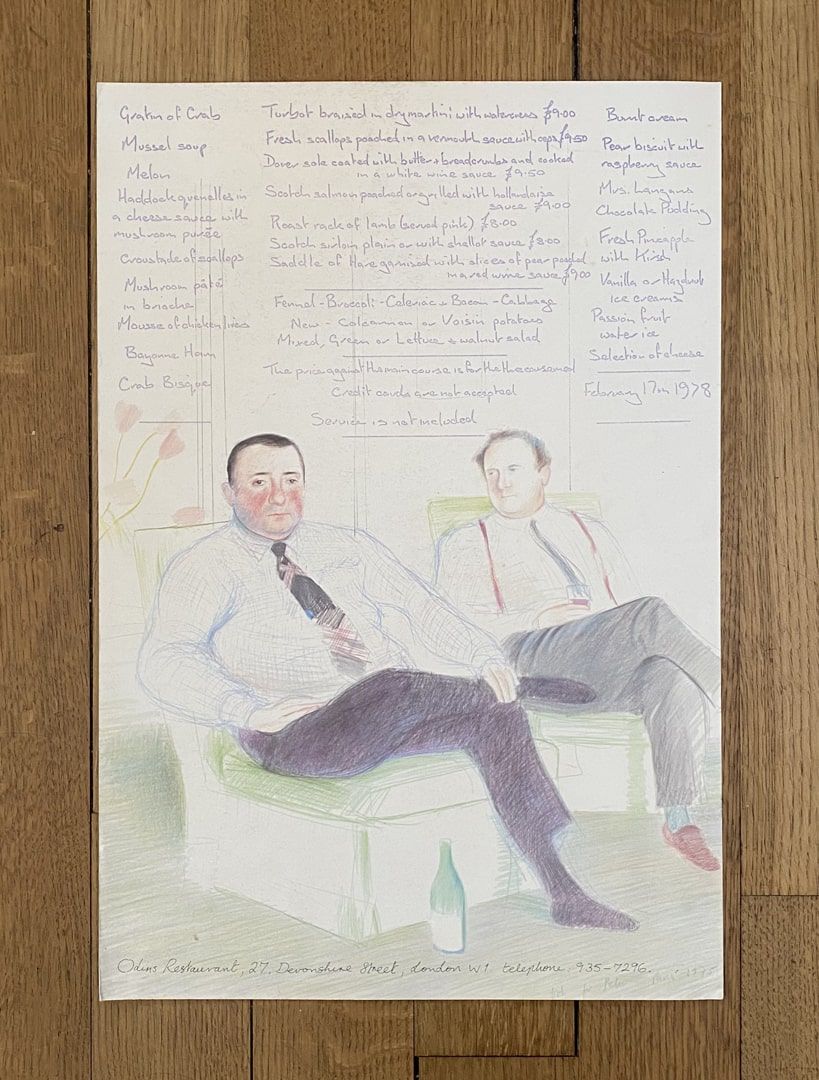 Gratin of Crab
Mussel soup
Melon
Haddock quenelles in
a cheese sauce with
mushroom purée
Croustade of scallops
Mushroom pâté
in brioche
Mousse of chicken livers
Bayonne Ham
Crab Bisque
Turbot braised in dry martini with watercress £9.00
Fresh scallops poached in a vermouth sauce with ceps £9.50
Dover sole coated with butter & breadcrumbs and cooked
in a white wine sauce £9.50
Scotch salmon poached or grilled with hollandaise
sauce £9.00
Roast rack of lamb (served pink) £8.00
Scotch sirloin plain or with shallot sauce £8.00
Saddle of Hare garnised with slices of pear poached
in a red wine sauce £9.00
Fennel - Broccoli - Celeriac & Bacon - Cabbage
New - Colcannon or Voisin potatoes
Mixed, Green or Lettuce & walnut salad
The price against the main course is for the three courses
Credit cards are not accepted
Service is not included
Burnt cream
Pear biscuit with
raspberry sauce
Mrs. Langans
Chocolate Pudding
Fresh Pineapple
with Kirsh
Vanilla or Hazelnut
ice creams
Passion fruit
water ice
Selection of cheese
February 17th 1978
Odins Restaurant, 27, Devonshire Street, London W1. telephone. 935-7296.